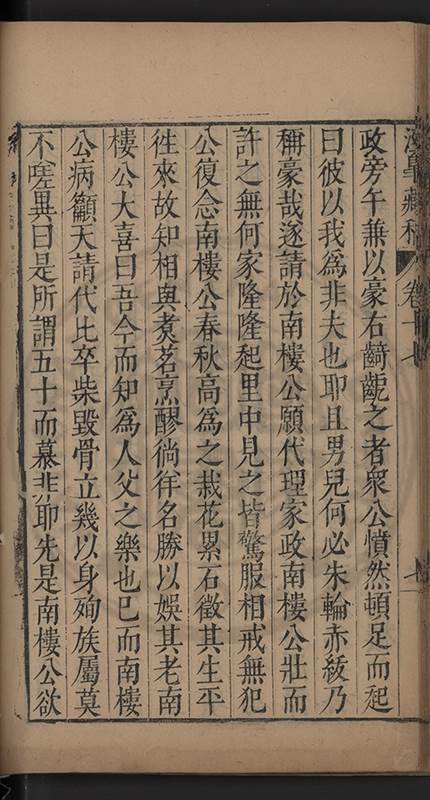 漁皐藏稿 卷十七
政旁午兼以豪右齮齕之者衆公憤然頓足而起
曰彼以我爲非夫也耶且男兒何必朱輪赤紱乃
稱豪哉遂請於南樓公願代理家政南樓公壯而
許之無何家隆隆起里中見之皆驚服相戒無犯
公復念南樓公春秋高爲之栽花累石徵其生平
徃來故知相與煑茗烹醪徜徉名勝以娛其老南
樓公大喜曰吾今而知爲人父之樂也已而南樓
公病籲天請代比卒柴毀骨立幾以身殉族屬莫
不嗟異曰是所謂五十而慕非耶先是南樓公欲